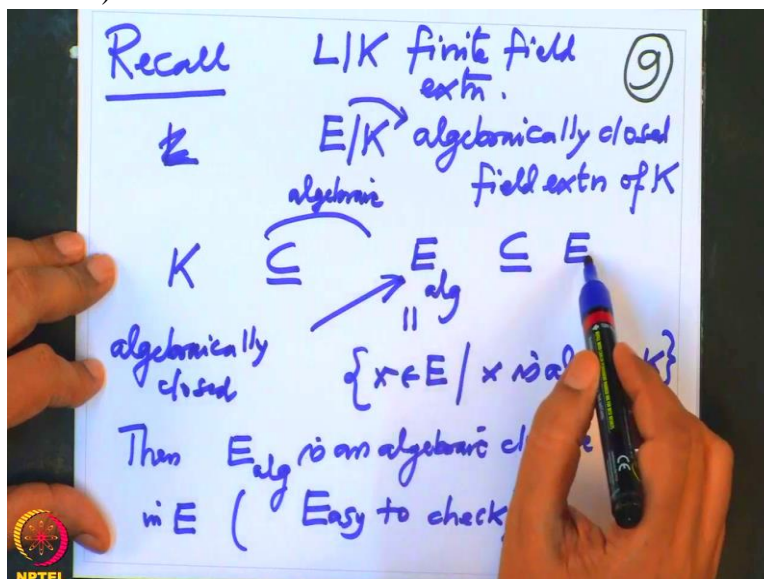 Recall L|K finite field
extn.
9
E|K algebraically closed
algebraic field extn of K
K ⊆ E_alg ⊆ E
||
algebraically
closed {x ∈ E | x is K}
Then E_alg is an algebraic
in E ( Easy to check
NPTEL